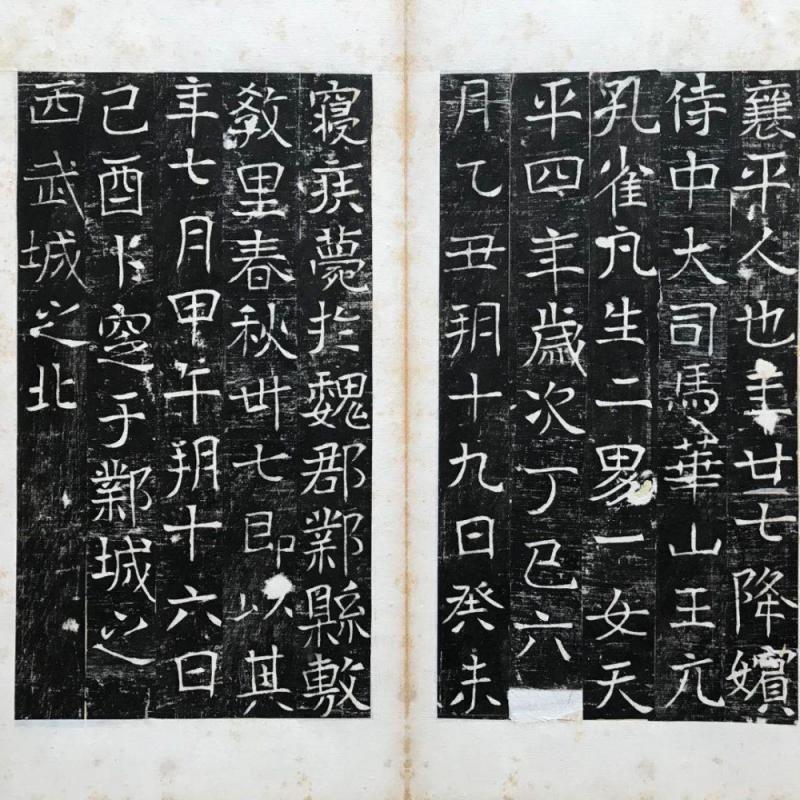 襄平人也年廿七降嬪
侍中大司馬華山王亢
孔雀凡生二男一女天
平四年歲次丁巳六
月乙丑朔十九日癸未
寢疾薨於魏郡鄴縣敷
教里春秋卅七即以其
年七月甲午朔十六日
己酉卜窆于鄴城之
西武城之北